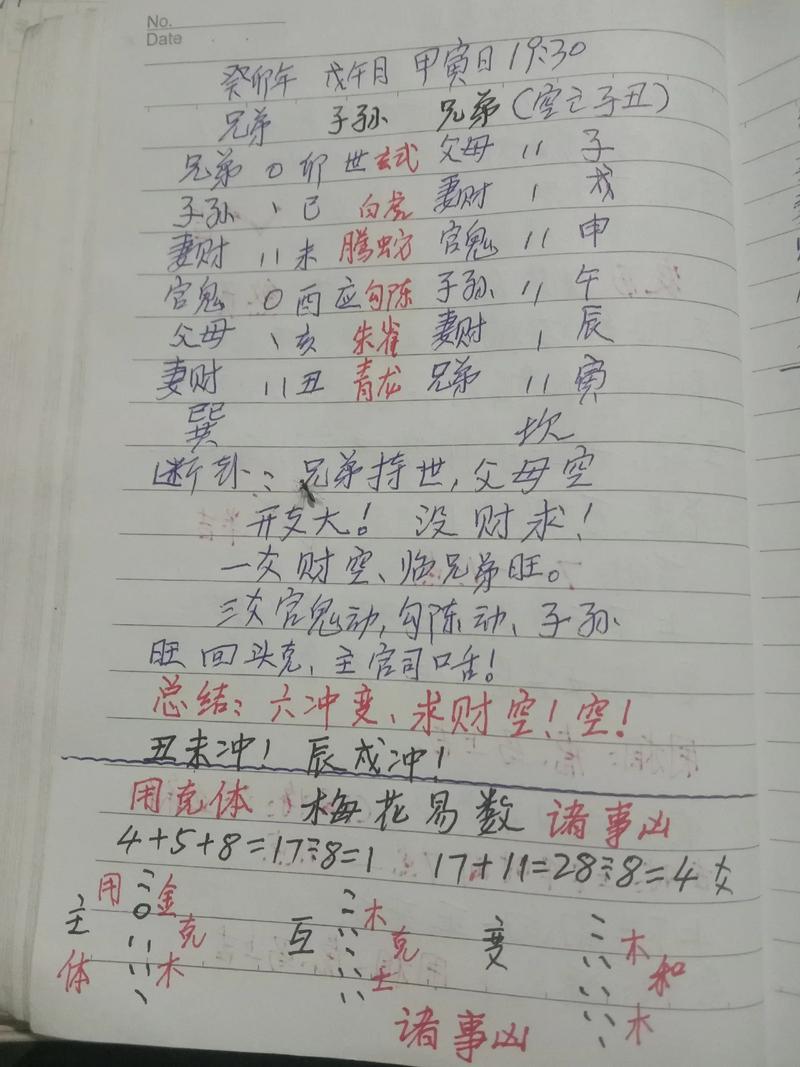 No.
Date
癸卯年 戊午月 甲寅日 19:30
兄弟 子孙 兄弟(空亡子丑)
兄弟 〇 卯 世 玄武 父母 〃 子
子孙 、 巳 白虎 妻财 、 戌
妻财 〃 未 腾蛇 官鬼 〃 申
官鬼 〇 酉 应 勾陈 子孙 〃 午
父母 、 亥 朱雀 妻财 、 辰
妻财 〃 丑 青龙 兄弟 〃 寅
巽 坎
断卦:兄弟持世,父母空
开支大! 没财求!
一爻财空、临兄弟旺。
三爻官鬼动,勾陈动、子孙
旺回头克、主官司口舌!
总结:六冲变、求财空!空!
丑未冲! 辰戌冲!
用克体 梅花易数 诸事凶
4+5+8=17÷8=1 17+11=28÷8=4爻
主 用 金 克 体 木
互 木 克 土
变 木 和 木
诸事凶